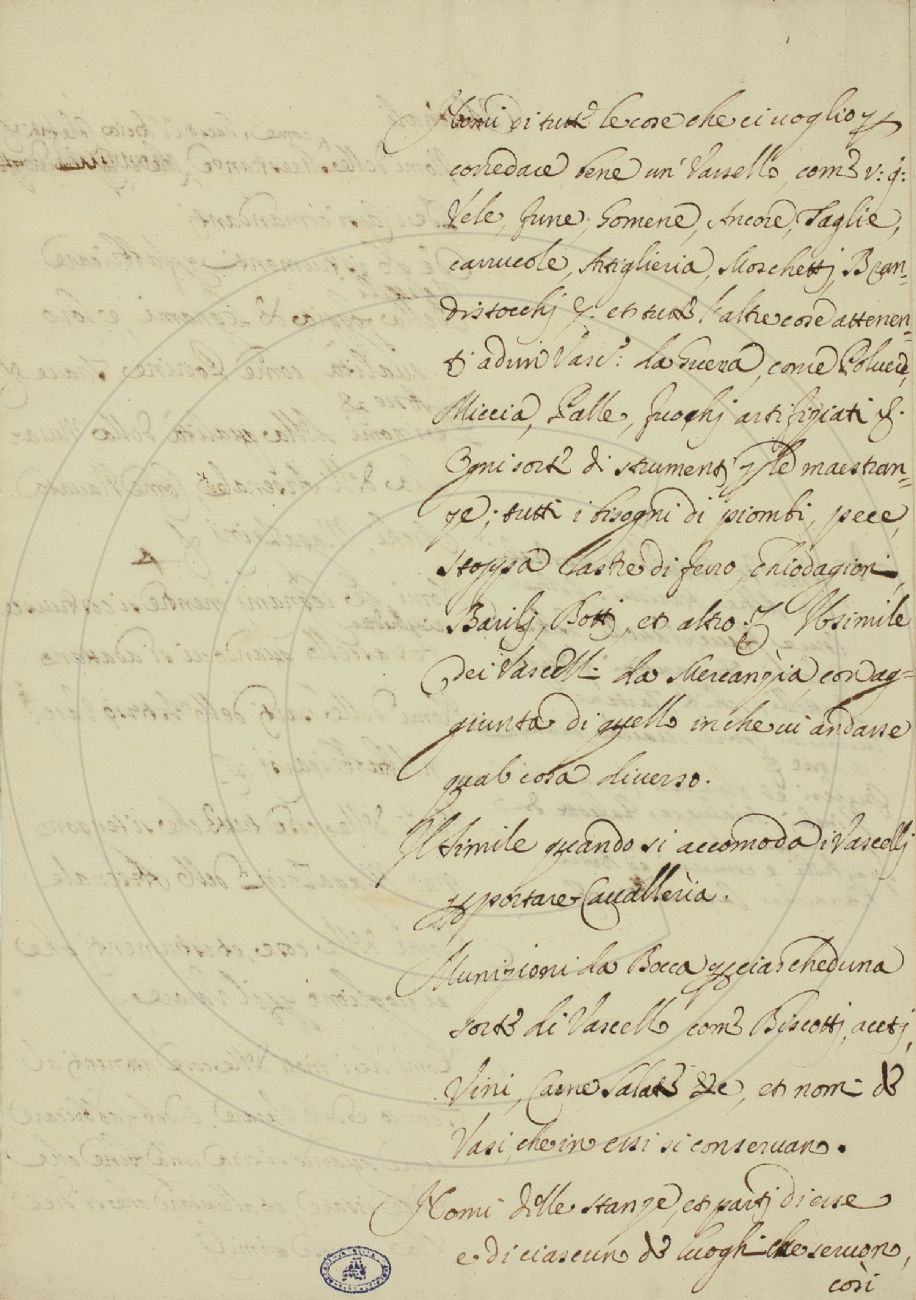 Nomi di tutte le cose che ci voglio p
corredare bene un' Vassello, come v: g:
Vele, fune, Gomene, Ancore, Taglie,
carrucole, Artiglieria, Moschetti, Bran=
distocchj et tutte l'altre cose attenen=
ti ad un Vasc.º da Guerra, come Polvere,
Miccia, Palle, fuochj artifiziati &.
Ogni sorte di strumenti p le maestran=
ze; tutti i bisogni di piombi, pece,
stoppa lastre di ferro, chiodagioni,
Barilj, Bottj, et altro Il simile
dei Vascelli da Mercanzia, con ag=
giunta di quello in che vi andasse
qual cosa diverso.
Il simile quando si accomoda i Vascellj
p portare Cavalleria.
Munizioni da Bocca p ciascheduna
sorte di Vascello come Biscottj, acetj,
Vini, Carne Salate &c, et nomi de
Vasi, che in essi si conservano.
Nomi delle stanze, et partj di esse
e di ciascun de luoghi che servon,
così